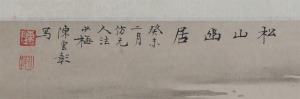 松山幽居
癸未
二月
仿元
人法
少梅
陳雲彰
寫